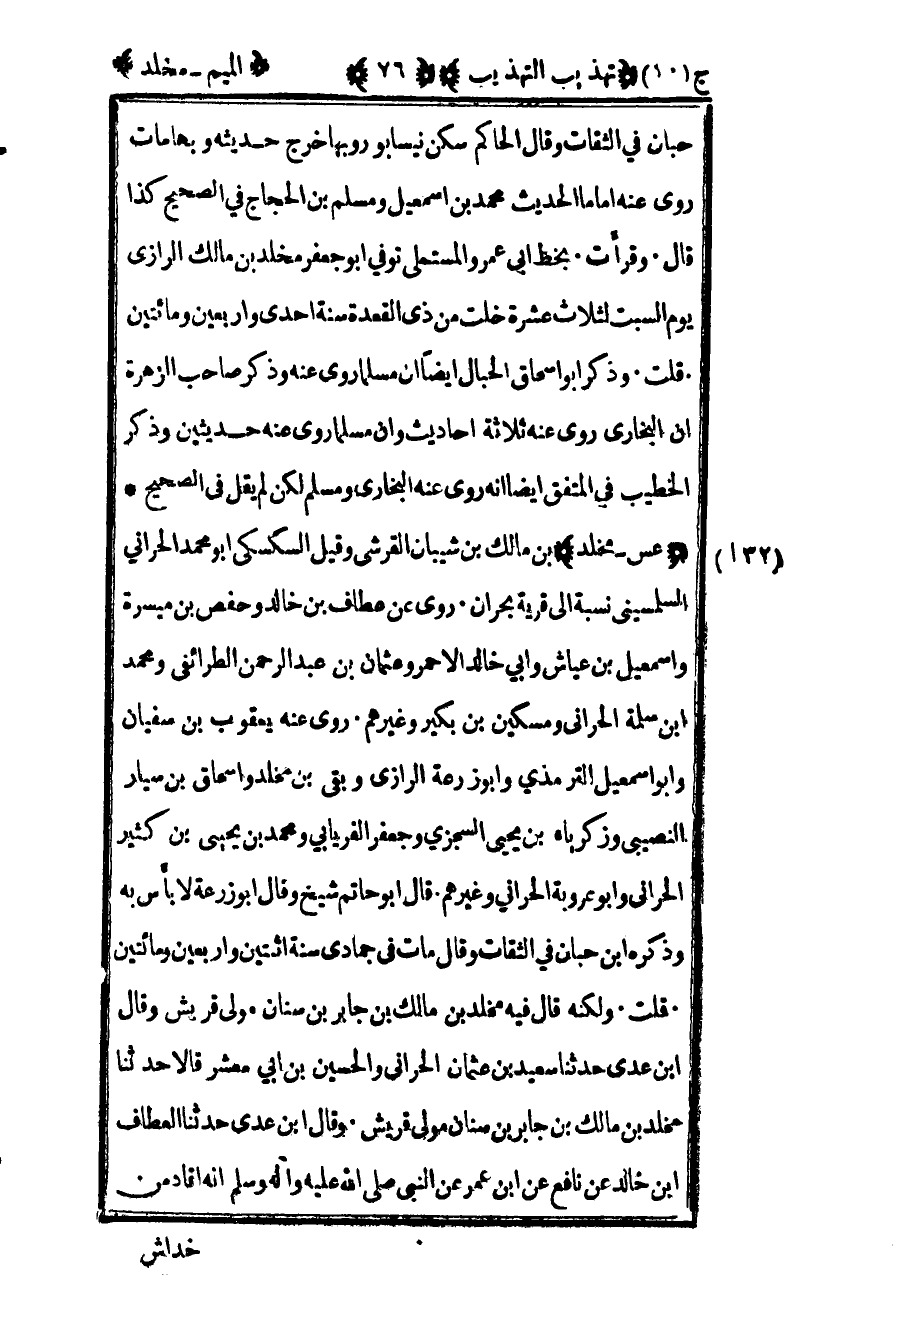 ج (١٠) ﴿ تهذيب التهذيب ﴾ ﴿ ٧٦ ﴾ ﴿ الميم - مخلد ﴾
حبان في الثقات وقال الحاكم سكن نيسابور وبها خرج حديثه وبها مات
روى عنه اماما الحديث محمد بن اسمعيل ومسلم بن الحجاج في الصحيح كذا
قال · وقرأت · بخط ابي عمرو المستملى توفي ابو جعفر مخلد بن مالك الرازى
يوم السبت لثلاث عشرة خلت من ذى القعدة سنة احدى واربعين ومائتين
· قلت · وذكر ابو اسحاق الحبال ايضاً ان مسلما روى عنه وذكر صاحب الزهرة
ان البخارى روى عنه ثلاثة احاديث وان مسلما روى عنه حديثين وذكر
الخطيب في المتفق ايضا انه روى عنه البخارى ومسلم لكن لم يقل فى الصحيح *
(١٣٢) ﴿ عس - مخلد ﴾ بن مالك بن شيبان القرشى وقيل السكسكى ابو محمد الحراني
السلمسينى نسبة الى قرية بحران · روى عن عطاف بن خالد وحفص بن ميسرة
واسمعيل بن عياش وابي خالد الاحمر وعثمان بن عبد الرحمن الطرائفى ومحمد
ابن سلمة الحرانى ومسكين بن بكير وغيرهم · روى عنه يعقوب بن سفيان
وابو اسمعيل الترمذي وابو زرعة الرازى وبقى بن مخلد واسحاق بن سيار
النصيبى وزكرياء بن يحيى السجزي وجعفر الفريابي ومحمد بن يحيى بن كثير
الحرانى وابو عروبة الحراني وغيرهم · قال ابو حاتم شيخ وقال ابو زرعة لا بأس به
وذكره ابن حبان في الثقات وقال مات فى جمادى سنة اثنتين واربعين ومائتين
· قلت · ولكنه قال فيه مخلد بن مالك بن جابر بن سنان مولى قريش وقال
ابن عدى حدثنا سعيد بن عثمان الحراني والحسين بن ابي معشر قالا حدثنا
مخلد بن مالك بن جابر بن سنان مولى قريش · وقال ابن عدى حدثنا العطاف
ابن خالد عن نافع عن ابن عمر عن النبى صلى الله عليه وآله وسلم انه اقاد من
خداش